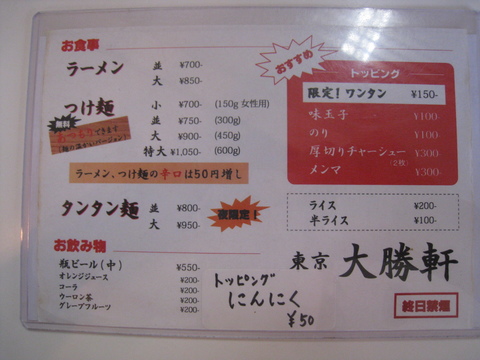 お食事
ラーメン 並 ¥700-
大 ¥850-
つけ麺 小 ¥700- (150g 女性用)
並 ¥750- (300g)
大 ¥900- (450g)
特大 ¥1,050- (600g)
無料
あつもりできます
ラーメン、つけ麺の辛口は50円増し
タンタン麺 並 ¥800-
大 ¥950-
夜限定!
お飲み物
瓶ビール(中) ¥550-
オレンジジュース ¥200-
コーラ ¥200-
ウーロン茶 ¥200-
グレープフルーツ ¥200-
おすすめ
トッピング
限定!ワンタン ¥150-
味玉子 ¥100-
のり ¥100-
厚切りチャーシュー ¥300-
(2枚)
メンマ ¥300-
ライス ¥200-
半ライス ¥100-
東京 大勝軒
トッピング
にんにく
¥50
終日禁煙